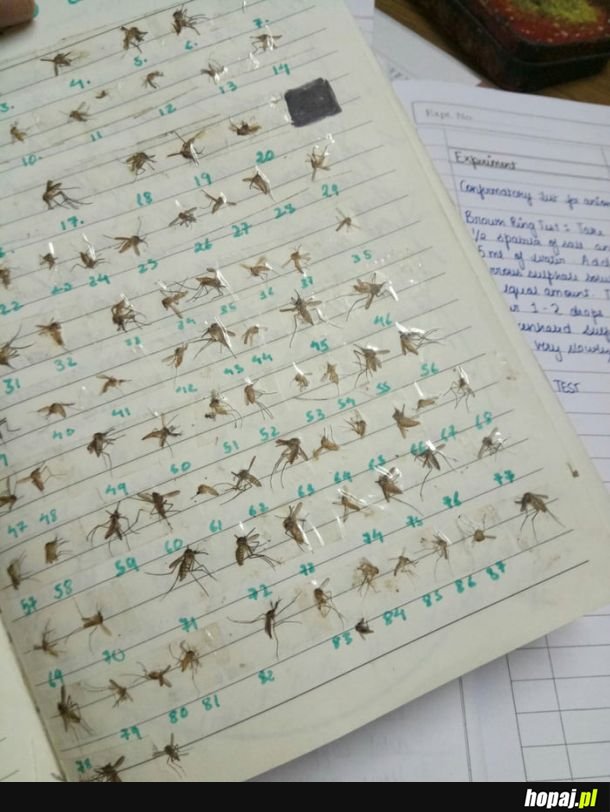 3. 4. 5. 6. 7.
10. 11 12 13 14
17. 18 19 20
22 23 24 25 26 27 28 29
31 32 33 34 35 36 37
40 41 42 43 44 45 46
47 48 49 50 51 52 53 54 55 56
57 58 59 60 61 62 63 64 65 66 67 68
69 70 71 72 73 74 75 76 77
78 79 80 81 82 83 84 85 86 87
Expt. No.
Experiment
Confirmatory
Brown Ring Test : Take
1/2 spatula of salt
5 ml of water. Add
sulphate
equal amount.
1-2 drops
very slowly
TEST
hopaj.pl